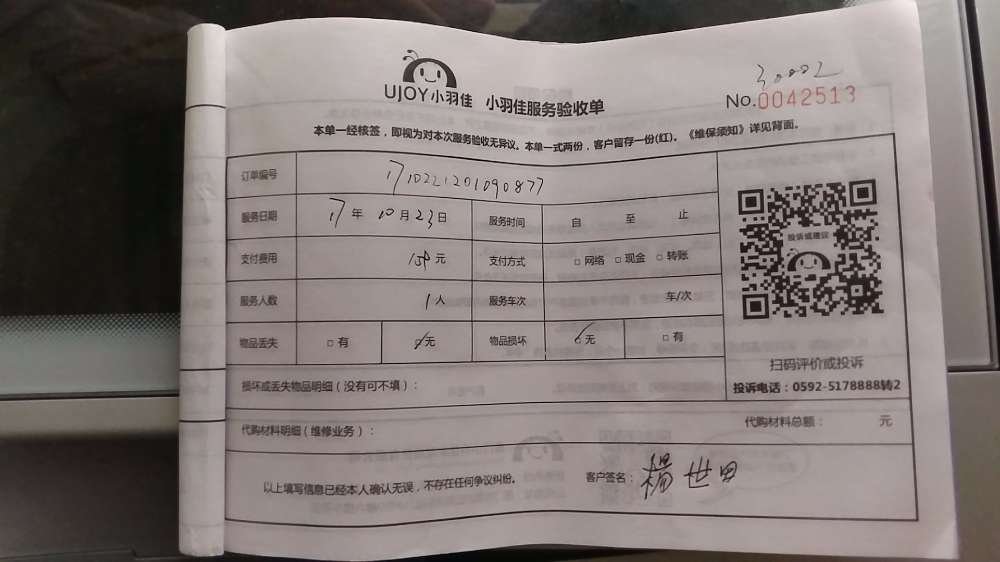 30002
UJOY小羽佳 小羽佳服务验收单 No.0042513
本单一经核签，即视为对本次服务验收无异议。本单一式两份，客户留存一份(红)。《维保须知》详见背面。
订单编号 1710221201090877
服务日期 17年10月23日 服务时间 自 至 止
支付费用 元 支付方式 □网络 □现金 □转账
服务人数 1人 服务车次 车/次
物品丢失 □有 □无 物品损坏 □无 □有
投诉或建议
扫码评价或投诉
投诉电话：0592-5178888转2
损坏或丢失物品明细（没有可不填）：
代购材料明细（维修业务）： 代购材料总额： 元
以上填写信息已经本人确认无误，不存在任何争议纠纷。 客户签名：楊世田